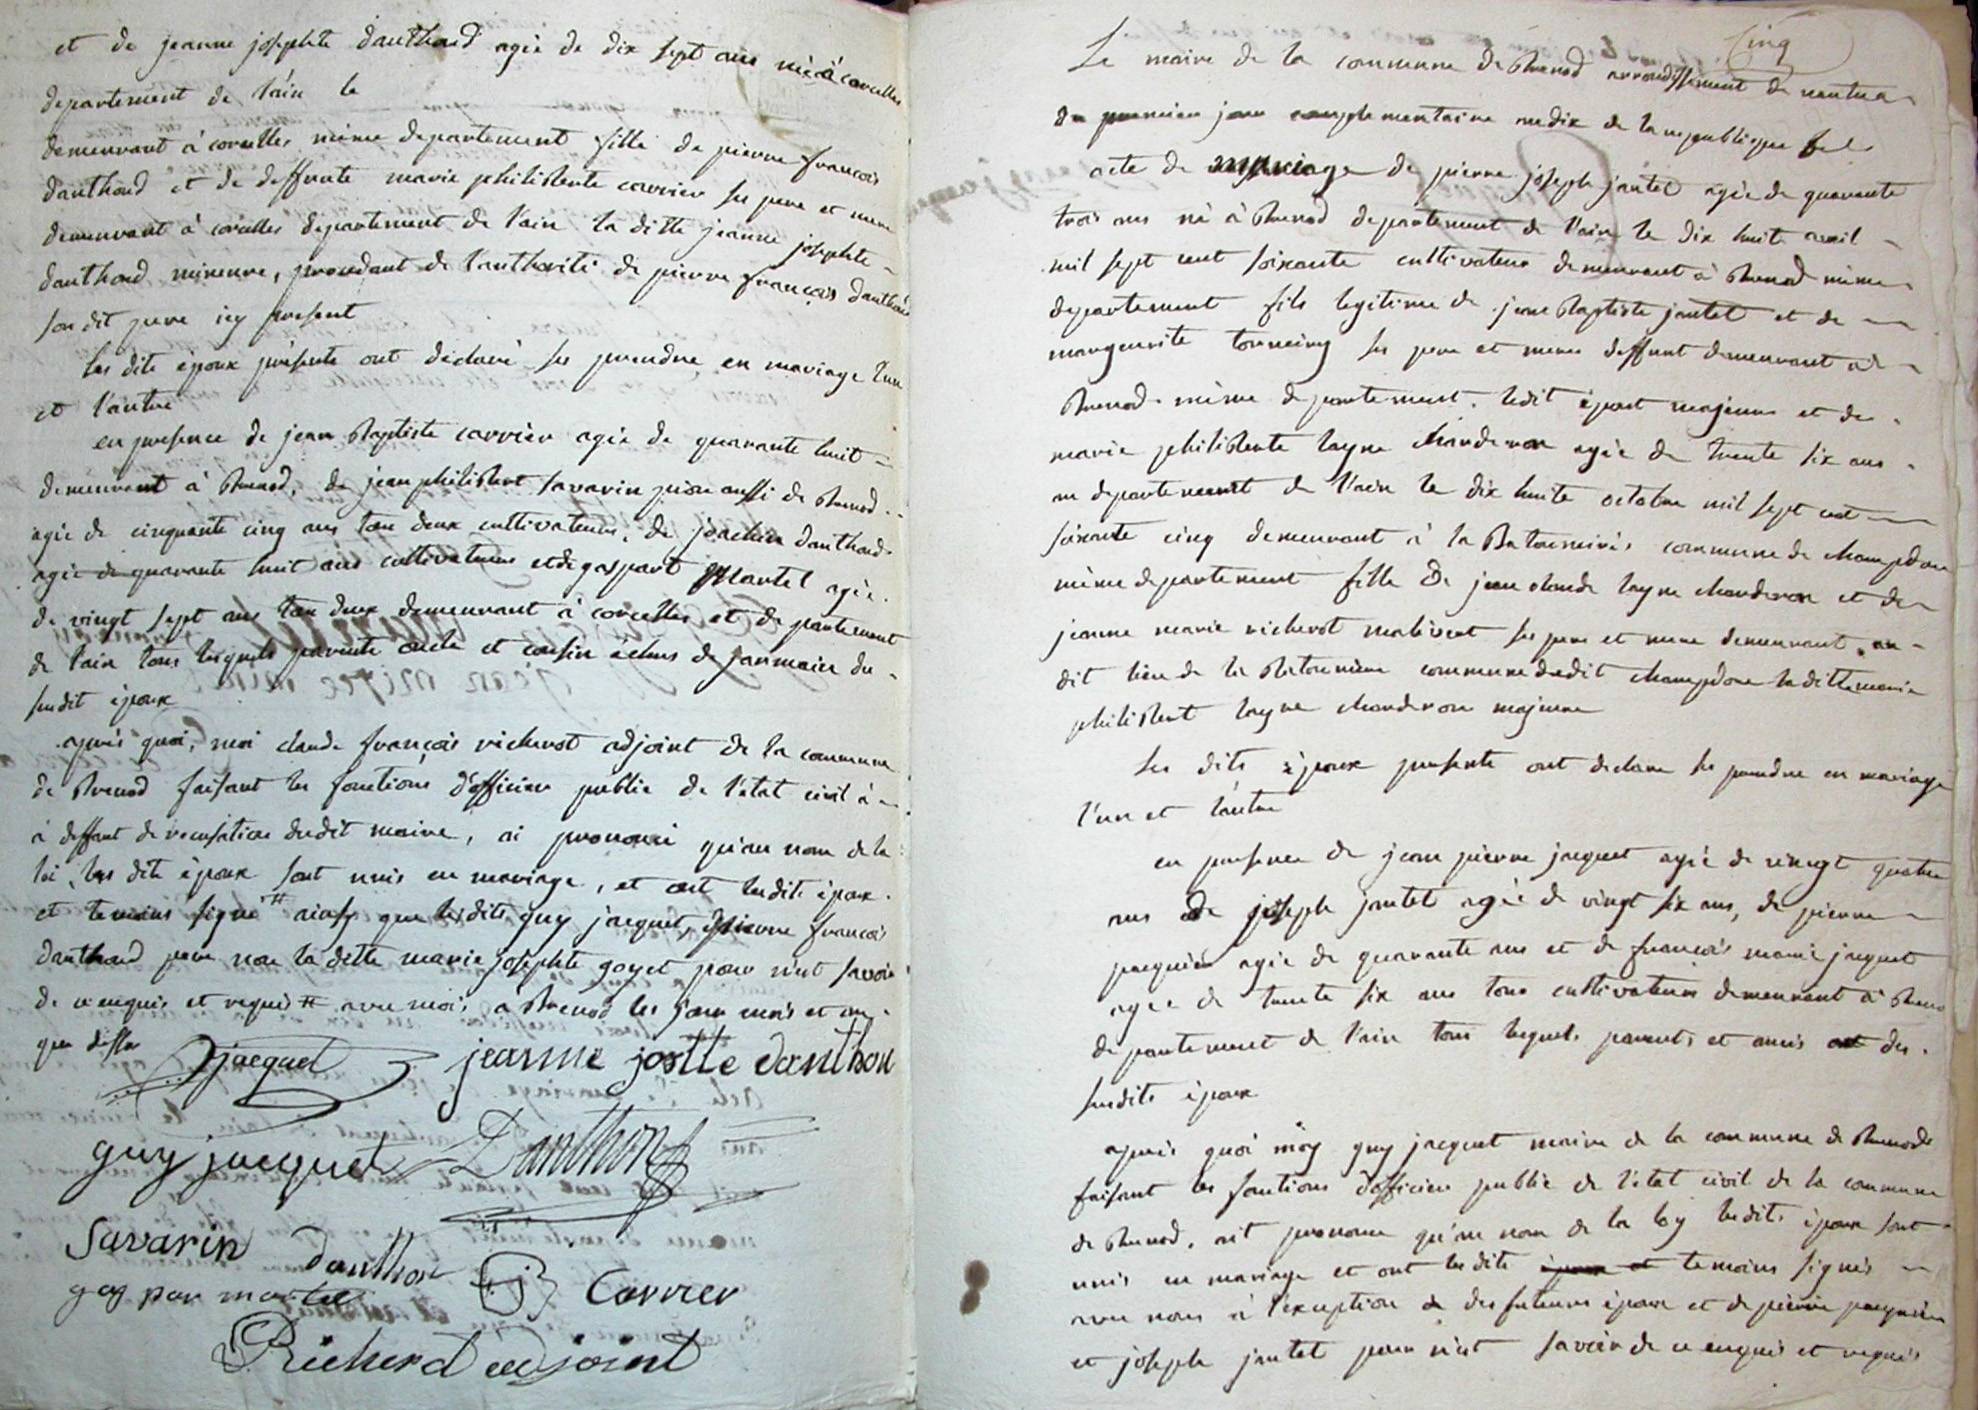 et de jeanne josephte danthond agée de dix sept ans née à corcelles
departement de l'ain le
demeurant à corcelles même departement fille de pierre françois
danthond et de deffunte marie philiberte carrier ses pere et mere
demeurant à corcelles departement de l'ain la ditte jeanne josephte
danthond mineure, procedant de l'authorité de pierre françois danthond
son dit pere icy present
les dits époux présents ont déclaré se prendre en mariage l'un
et l'autre
en presence de jean Baptiste carrier agée de quarante huit
demeurant à Brenod, de jean philibert savarin aussi de Brenod
agée de cinquante cinq ans tou deux cultivateurs, de joachin danthond
agée de quarante huit ans cultivateurs et de gaspart Martel agée
de vingt sept ans tou deux demeurant à corcelles et departement
de l'ain tous lesquels parents oncle et cousin de jarmain du
susdit époux
après quoi, moi claude françois richerot adjoint de la commune
de Brenod faisant les fonctions d'officier public de l'état civil à
à deffaut de recusation dudit maire, ai prononcé qu'au nom de la
loi, les dits époux sont unis en mariage, et ont lesdits époux
et temoins signé # ainsy que lesdits guy jacquet, pierre françois
danthond pere non la ditte marie josephte goyet pour n'eut savoir
de ce enquis et requis # avec moi, a Brenod les jour mois et an
que dessu
jacquet jeanne josette danthon
guy jacquet Danthon
Savarin danthon JB Carrier
gas par martel
Richerd adjoint
Cinq
Le maire de la commune de Brenod arrondissement de nantua
du premier jour complementaire an dix de la republique
acte de mariage de pierre joseph jantet agée de quarante
trois ans né à Brenod departement de l'ain le dix huite avril
mil sept cent soixante cultivateur demeurant à Brenod même
departement fils legitime de jean Baptiste jantet et de
marguerite ses pere et mere deffunt demeurant à
Brenod même departement. ledit époux majeure et de
marie philiberte layne chanderon agée de trente six ans
au departement de l'ain le dix huite octobre mil sept cent
soixante cinq demeurant à la Batonniere commune de champdor
même departement fille de jean claude layne chanderon et de
jeanne marie richerot malivert ses pere et mere demeurant au
dit lieu de la Batonniere commune dudit champdor la ditte marie
philibert layne chanderon majeure
les dits époux presents ont declare se prendre en mariage
l'un et l'autre
en presence de jean pierre jacquet agée de vingt quatre
ans de joseph jantet agée de vingt six ans, de pierre
pacquier agée de quarante ans et de françois marie jacquet
agée de trente six ans tous cultivateurs demeurant à Brenod
departement de l'ain tous lesquels parents et amis des
susdits époux
après quoi moy guy jacquet maire de la commune de Brenod
faisant les fontions d'officier public de l'état civil de la commune
de Brenod, ait prononce qu'au nom de la loy lesdits époux sont
unis en mariage et ont lesdits époux et temoins signés
avec nous à l'exception de des futeurs époux et de pierre pacquier
et joseph jantet pour n'eut savoir de ce enquis et requis